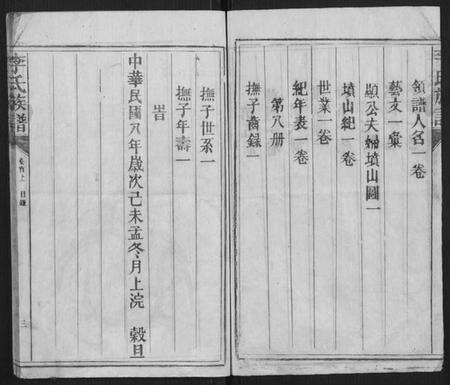 領譜人名一卷
藝文一彙
顯公夫婦墳山圖一
墳山紀一卷
世業一卷
紀年表一卷
第八册
撫子舊錄一
撫子世系一
撫子年壽一
旹
中華民國八年歲次己未孟冬月上浣 穀旦
李氏族譜
卷首上 目錄
三